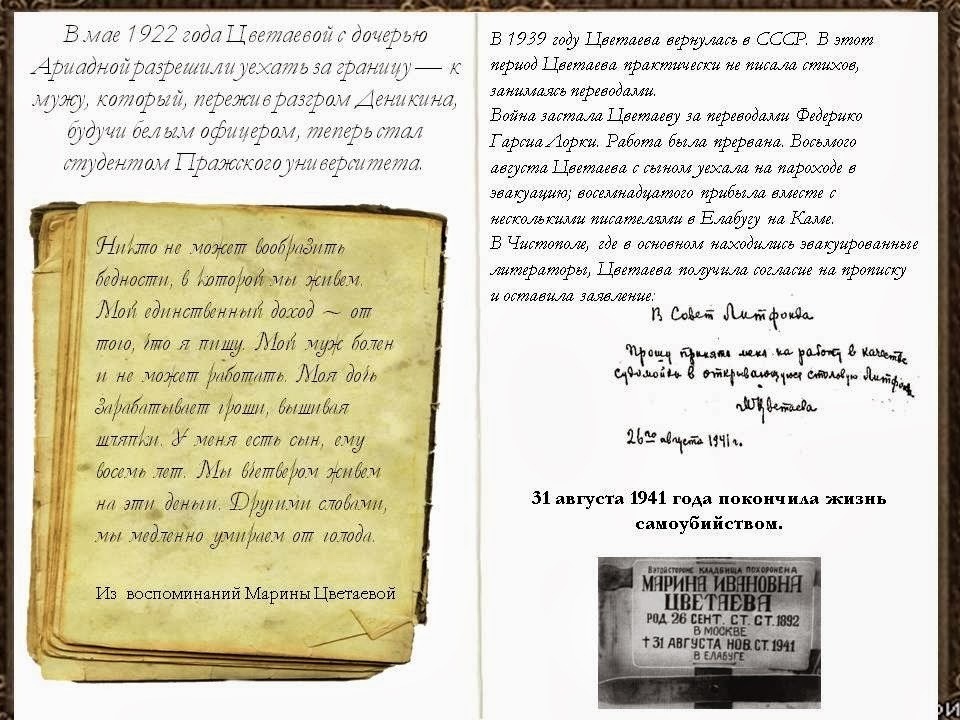 В мае 1922 года Цветаевой с дочерью
Ариадной разрешили уехать за границу — к
мужу, который, пережив разгром Деникина,
будучи белым офицером, теперь стал
студентом Пражского университета.
Никто не может вообразить
бедности, в которой мы живем.
Мой единственный доход ~ от
того, что я пишу. Мой муж болен
и не может работать. Моя дочь
зарабатывает гроши, вышивая
шляпки. У меня есть сын, ему
восемь лет. Мы вчетвером живем
на эти деньги. Другими словами,
мы медленно умираем от голода.
Из воспоминаний Марины Цветаевой
В 1939 году Цветаева вернулась в СССР. В этот
период Цветаева практически не писала стихов,
занимаясь переводами.
Война застала Цветаеву за переводами Федерико
Гарсиа Лорки. Работа была прервана. Восьмого
августа Цветаева с сыном уехала на пароходе в
эвакуацию; восемнадцатого прибыла вместе с
несколькими писателями в Елабугу на Каме.
В Чистополе, где в основном находились эвакуированные
литераторы, Цветаева получила согласие на прописку
и оставила заявление:
В Совет Литфонда
Прошу принять меня на работу в качестве
судомойки в открывающуюся столовую Литфонда
МЦветаева
26го августа 1941 г.
31 августа 1941 года покончила жизнь
самоубийством.
В этой стороне кладбища похоронена
МАРИНА ИВАНОВНА
ЦВЕТАЕВА
РОД 26 СЕНТ. СТ. СТ. 1892
В МОСКВЕ
† 31 АВГУСТА НОВ. СТ. 1941
В ЕЛАБУГЕ